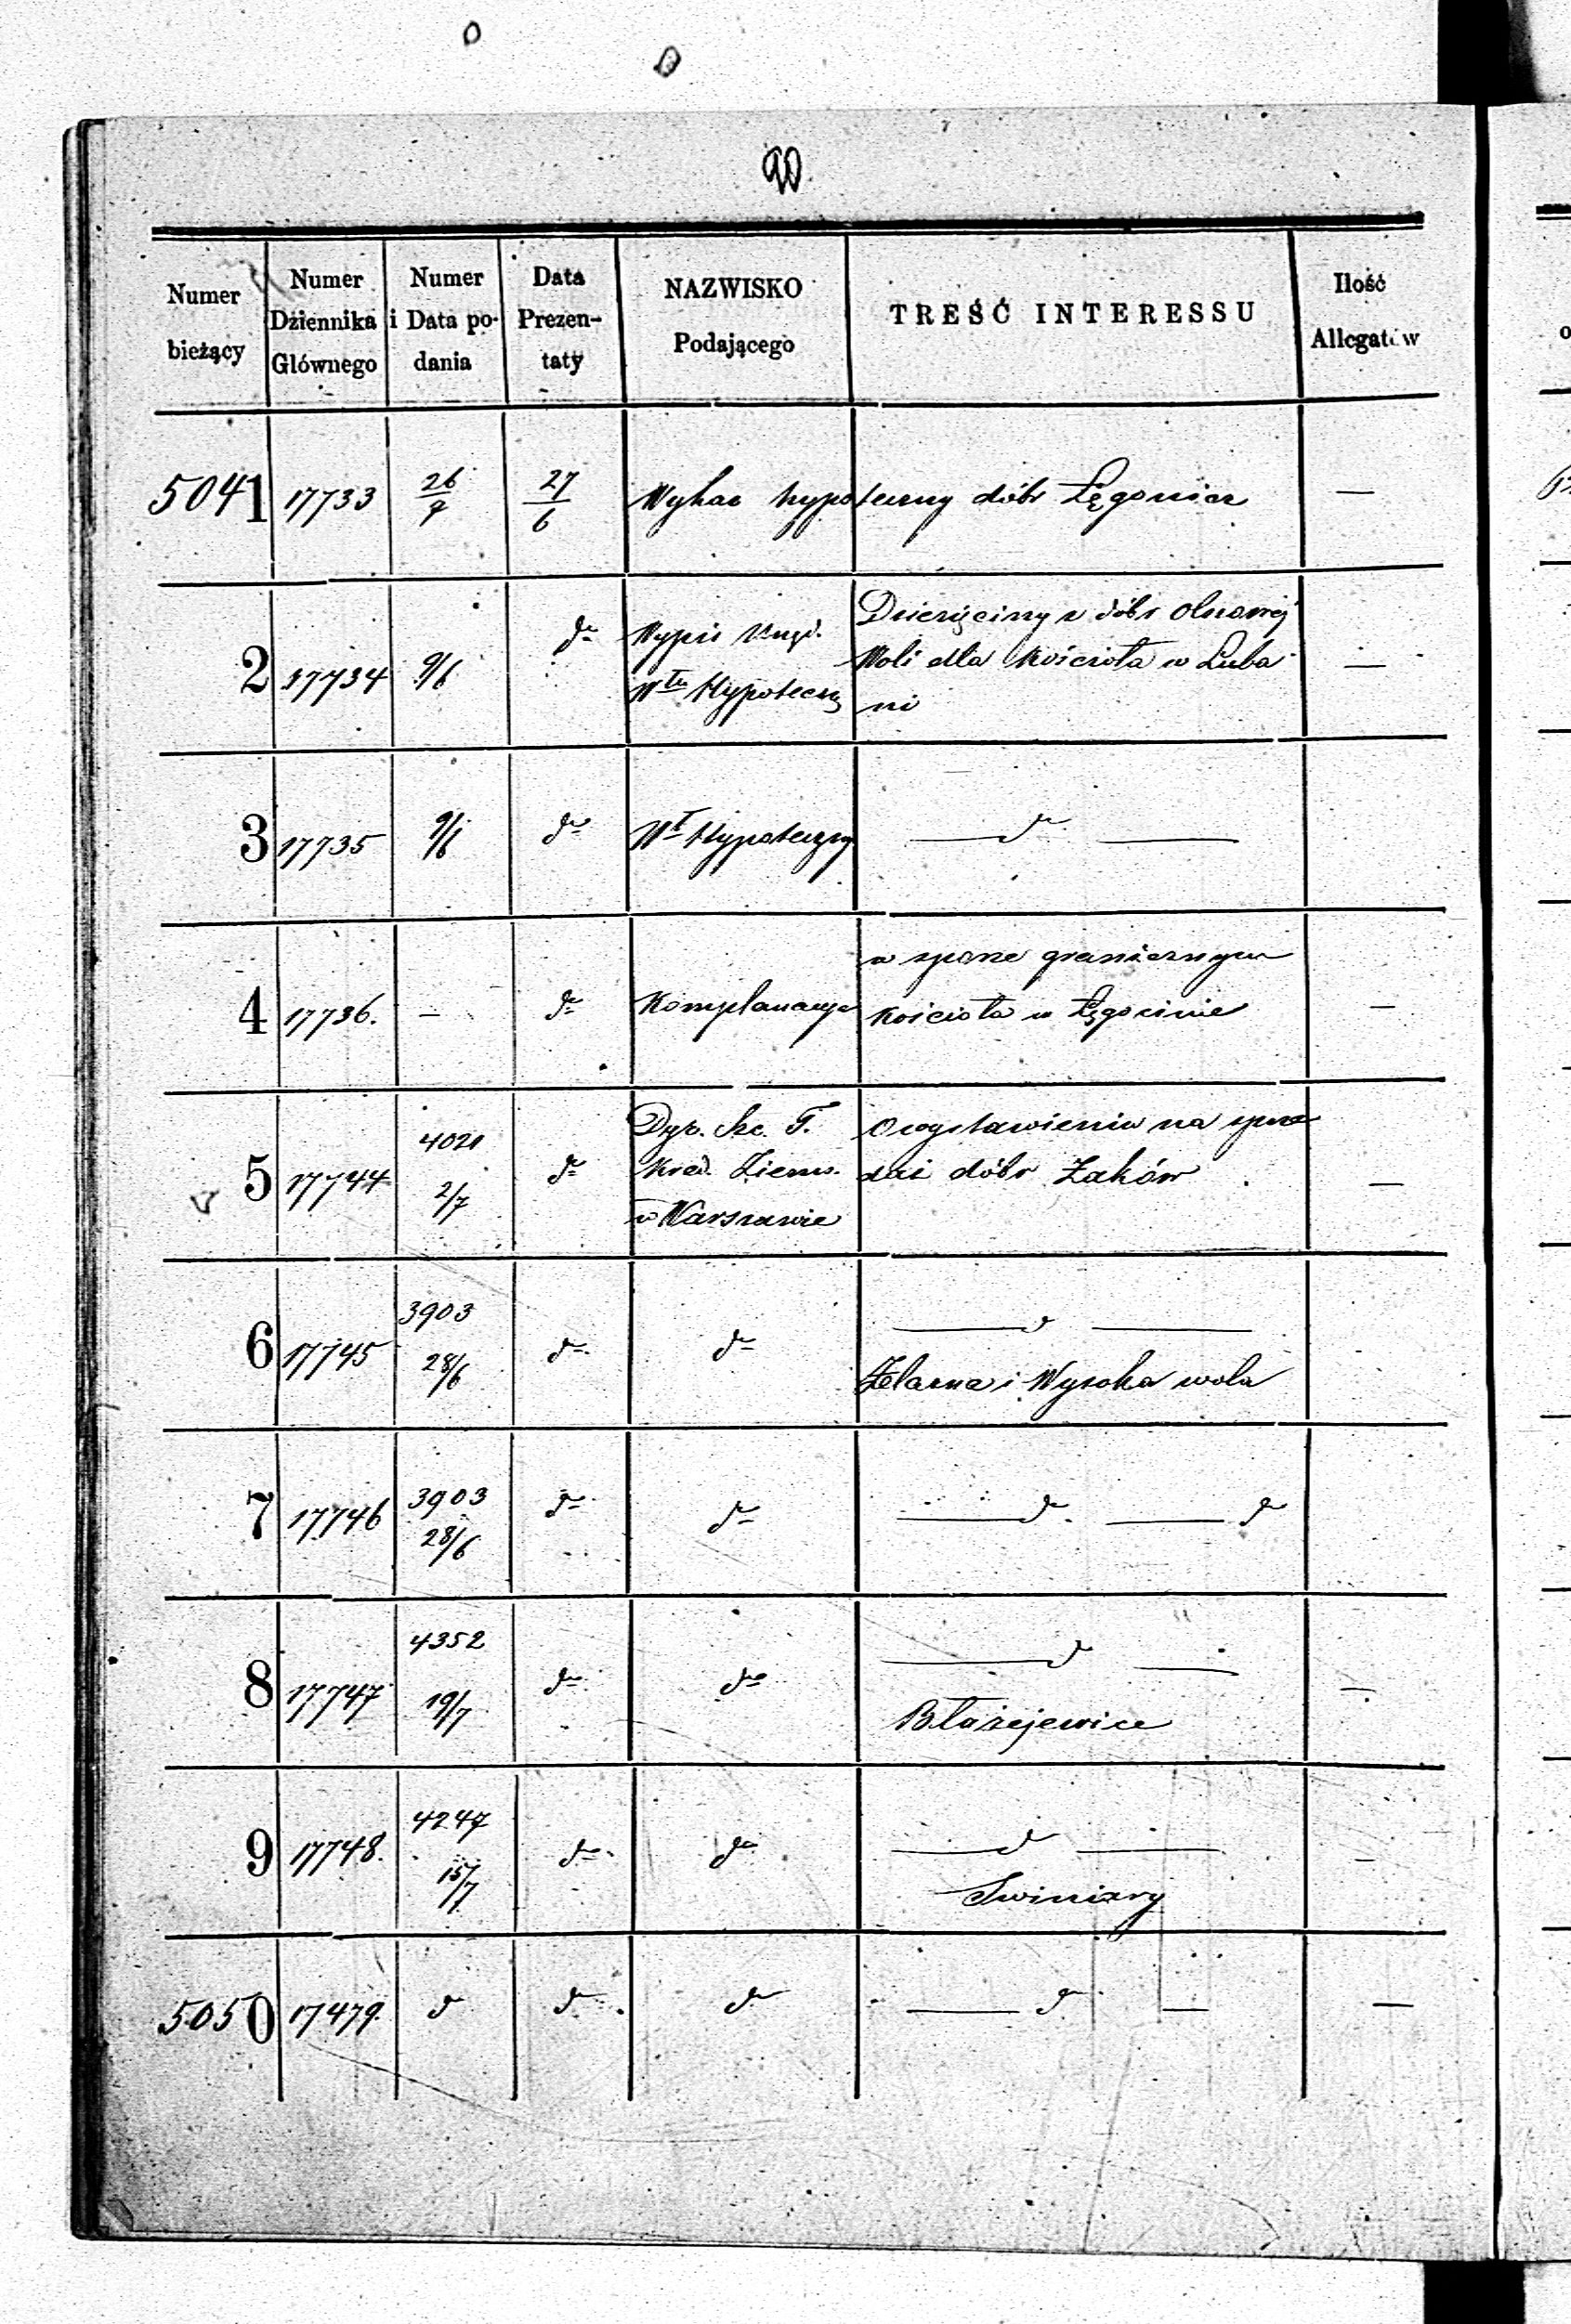 90
Numer bieżący | Numer Dziennika Głównego | Numer i Data podania | Data Prezentaty | NAZWISKO Podającego | TREŚĆ INTERESSU | Ilość Allegatów
5041 | 17733 | 26/7 | 27/6 | Wykaz hypoteczny dóbr Łęgonice | —
2 | 17734 | 9/6 | do | Wypis
Wtu Hypoteczn | Dziesięciny z dóbr
Woli dla Kościoła w Luba
ni | —
3 | 17735 | 9/6 | do | Wt Hypoteczny | — do —
4 | 17736. | — | do | Komplanacya | w sporze granicznym
Kościoła w Łęgonice | —
5 | 17744 | 4021
2/7 | do | Dyr. Szc. T.
Kred. Ziems.
w Warszawie | O wystawieniu na sprze
daż dóbr Żaków | —
6 | 17745 | 3903
28/6 | do | do | — do —
Żelazna i Wysoka wola
7 | 17746 | 3903
28/6 | do | do | — do — do
8 | 17747 | 4352
19/7 | do | do | — do —
Błażejewice | —
9 | 17748. | 4247
15/7 | do | do | — do —
Swiniary | —
5050 | 17479. | do | do | do | — do — | —